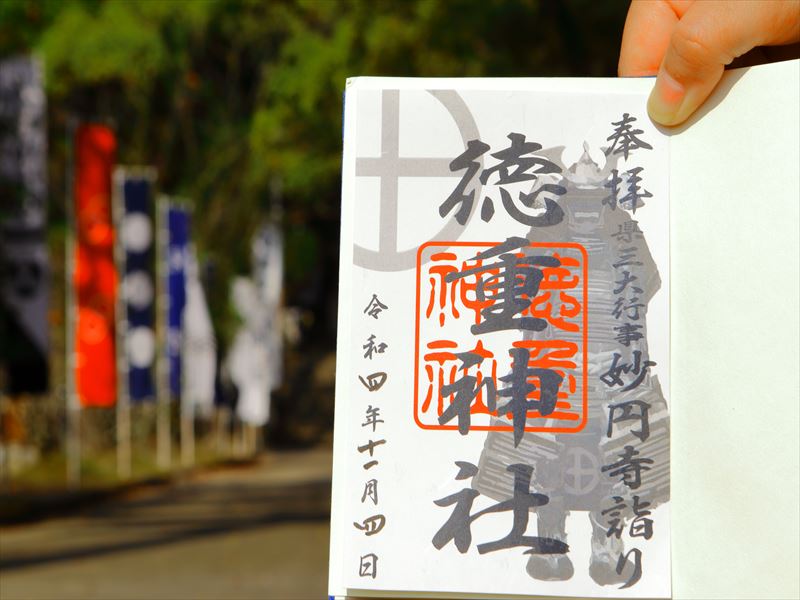 奉拝 県三大行事 妙円寺詣り
徳重神社
徳重神社
令和四年十一月四日